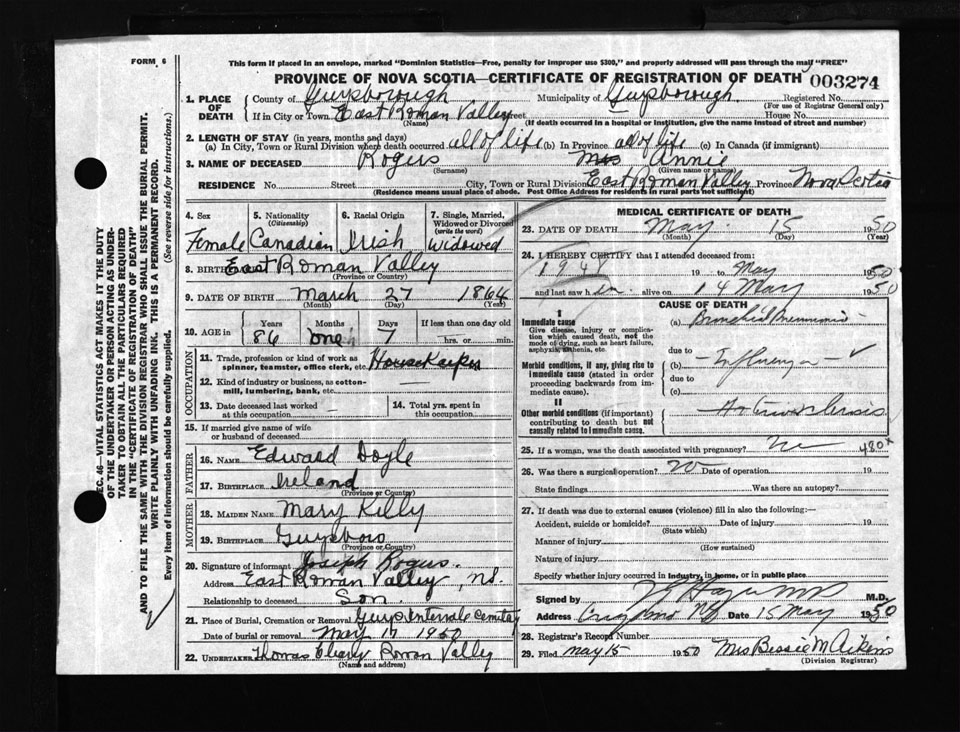 FORM 6
This form if placed in an envelope, marked "Dominion Statistics—Free, penalty for improper use $300," and properly addressed will pass through the mail "FREE"
PROVINCE OF NOVA SCOTIA—CERTIFICATE OF REGISTRATION OF DEATH 003274
1. PLACE OF DEATH
County of Guysborough Municipality of Guysborough Registered No.
(For use of Registrar General only)
If in City or Town East Roman Valley Street House No.
(Name) (If death occurred in a hospital or institution, give the name instead of street and number)
2. LENGTH OF STAY (in years, months and days)
(a) In City, Town or Rural Division where death occurred all of life (b) In Province all of life (c) In Canada (if immigrant)
3. NAME OF DECEASED Rogers Mrs Annie
(Surname) (Given name or names)
RESIDENCE No. Street City, Town or Rural Division East Roman Valley Province Nova Scotia
(Residence means usual place of abode. Post Office Address for residents in rural parts not sufficient)
4. Sex Female
5. Nationality (Citizenship) Canadian
6. Racial Origin Irish
7. Single, Married, Widowed or Divorced (write the word) Widowed
8. BIRTHPLACE East Roman Valley
(Province or Country)
9. DATE OF BIRTH March 27 1864
(Month) (Day) (Year)
10. AGE in Years Months Days If less than one day old
86 one 7 hrs. or min.
OCCUPATION
11. Trade, profession or kind of work as spinner, teamster, office clerk, etc. Housekeeper
12. Kind of industry or business, as cotton-mill, lumbering, bank, etc. —
13. Date deceased last worked at this occupation —
14. Total yrs. spent in this occupation
15. If married give name of wife or husband of deceased
FATHER
16. NAME Edward Doyle
17. BIRTHPLACE Ireland
(Province or Country)
MOTHER
18. MAIDEN NAME Mary Kelly
19. BIRTHPLACE Guysboro
(Province or Country)
20. Signature of informant Joseph Rogers.
Address East Roman Valley, N.S.
Relationship to deceased Son.
21. Place of Burial, Cremation or Removal Guys Intervale
Date of burial or removal May 17 1950
22. UNDERTAKER Thomas Roman Valley
(Name and address)
MEDICAL CERTIFICATE OF DEATH
23. DATE OF DEATH May 15 1950
(Month) (Day) (Year)
24. I HEREBY CERTIFY that I attended deceased from:
19 to May 1950
and last saw h alive on 14 May 1950
CAUSE OF DEATH
I
Immediate cause
Give disease, injury or complication which caused death, not the mode of dying, such as heart failure, asphyxia, asthenia, etc.
(a) Bronchial Pneumonia
due to
Morbid conditions, if any, giving rise to immediate cause (stated in order proceeding backwards from immediate cause).
(b) Influenza
due to
(c)
II
Other morbid conditions (if important) contributing to death but not causally related to immediate cause.
Arteriosclerosis
25. If a woman, was the death associated with pregnancy? No 480x
26. Was there a surgical operation? No Date of operation 19
State findings Was there an autopsy?
27. If death was due to external causes (violence) fill in also the following:—
Accident, suicide or homicide? Date of injury 19
(State which)
Manner of injury
(How sustained)
Nature of injury
Specify whether injury occurred in industry, in home, or in public place
Signed by M.D.
Address Date 15 May 1950
28. Registrar's Record Number
29. Filed May 15 1950 Mrs Bessie M Aikins
(Division Registrar)
SEC. 46—VITAL STATISTICS ACT MAKES IT THE DUTY OF THE UNDERTAKER OR PERSON ACTING AS UNDERTAKER TO OBTAIN ALL THE PARTICULARS REQUIRED IN THE "CERTIFICATE OF REGISTRATION OF DEATH"
AND TO FILE THE SAME WITH THE DIVISION REGISTRAR WHO SHALL ISSUE THE BURIAL PERMIT.
WRITE PLAINLY WITH UNFADING INK. THIS IS A PERMANENT RECORD.
Every item of information should be carefully supplied. (See reverse side for instructions.)